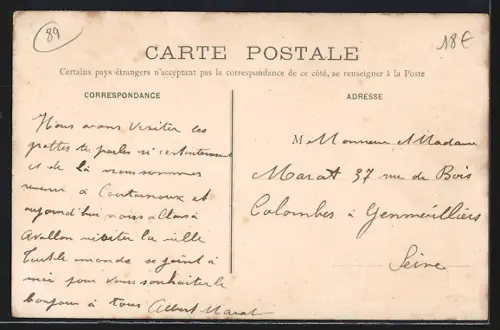 89
18€
CARTE POSTALE
Certains pays étrangers n'acceptant pas la correspondance de ce côté, se renseigner à la Poste
CORRESPONDANCE
ADRESSE
Nous avons visiter les
grottes tu parles si c'est intéressant
et de là nous sommes
revenu à Coutarnoux et
aujourd'hui nous allons à
Avallon visiter la ville
Tout le monde se joint à
moi pour vous souhaiter le
bonjour à tous Albert Marat
M Monsieur Madame
Marat 37 rue de Bois
Colombes à Gennevilliers
Seine